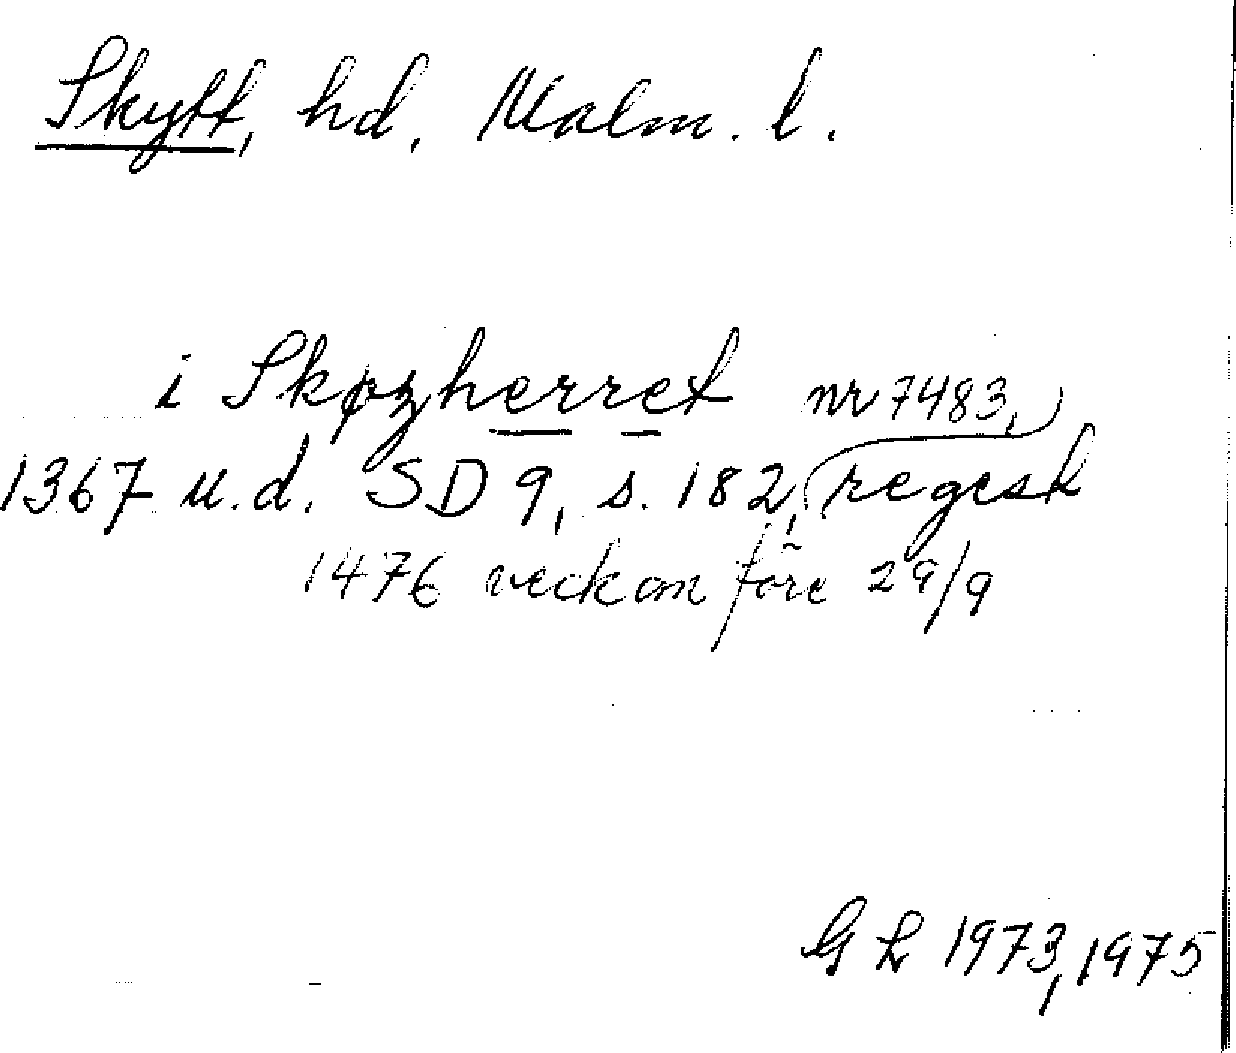 Skytt, hd, Malm. l.
i Skøzherret nr 7483,
1367 u.d. SD 9, s. 182, regest
1476 veckan före 29/9
GL 1973, 1975